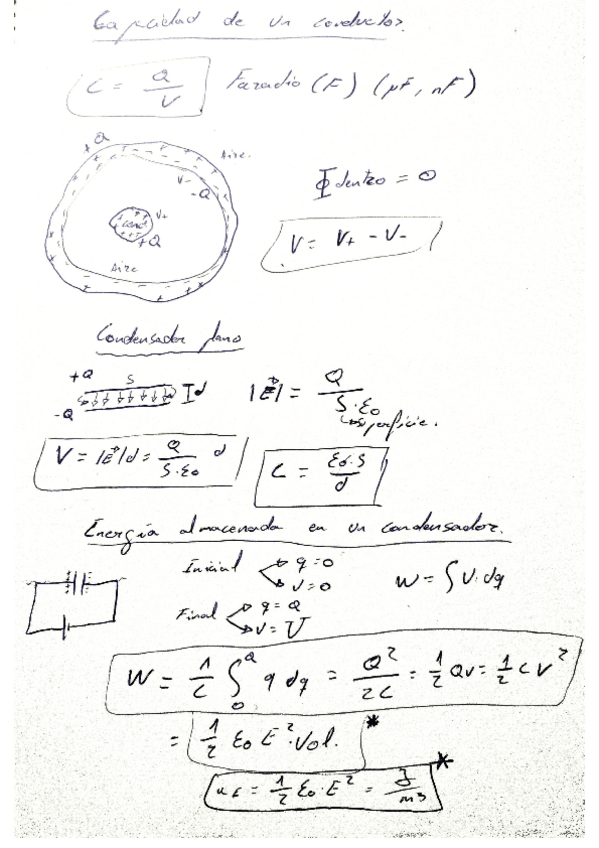 Capacidad de un conductor.
C = Q/V Faradio (F) (μF, nF)
+Q
Aire.
V-
-Q
Φ dentro = 0
V+
cond
+Q
V = V+ - V-
Aire
Condensador plano
+Q S d
-Q
|E| = Q/(S·ε0)
superficie.
V = |E|d = Q/(S·ε0) d
C = ε0·S/d
Energía almacenada en un condensador.
Inicial q=0
V=0
W = ∫V·dq
Final q=Q
V=V
W = 1/C ∫₀^Q q dq = Q²/2C = 1/2 QV = 1/2 CV²
= 1/2 ε0 E²·Vol. *
uE = 1/2 ε0·E² = J/m3 *